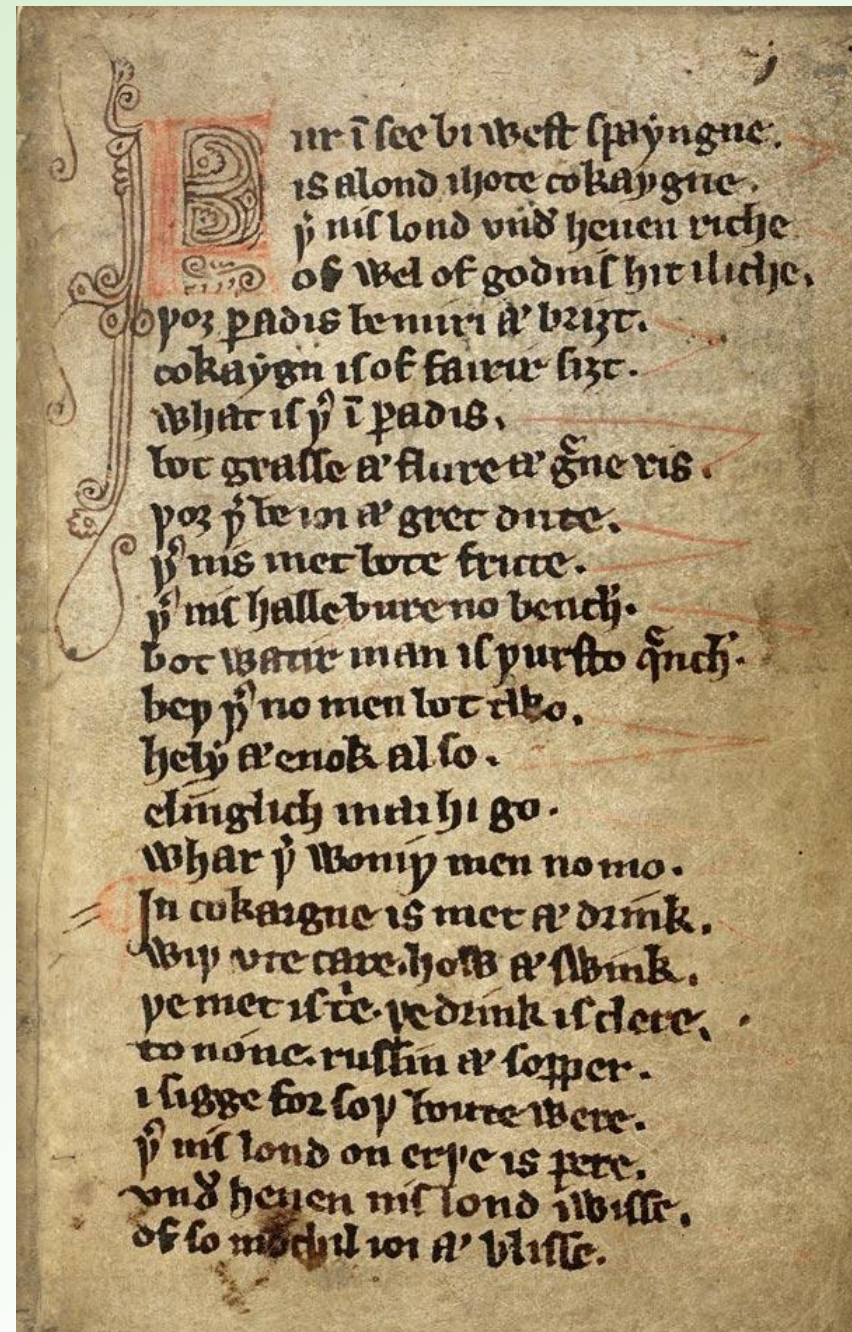 Fur ī see bi west spayngne.
is alond ihote cokaygne.
þ̉ nis lond vnd̉ heuen riche
of wel of godnis hit iliche.
þoȝ ꝑadis be miri ⁊ briȝt.
cokaygn is of fairir siȝt.
what is þ̉ ī ꝑadis.
bot grasse ⁊ flure ⁊ gͣne ris.
þoȝ þ̉ be ioi ⁊ gret dute.
þ̉ nis met bote frute.
þ̉ nis halle bure no bench.
bot watir man is þursto qͣnch.
beþ þ̉ no men bot two.
hely ⁊ enok also.
elinglich mai hi go.
whar þ̉ woniþ men no mo.
In cokaigne is met ⁊ drink.
wiþ vte care. how ⁊ swink.
þe met is tͥe. þe drink is clere.
to none. russin ⁊ sopper.
i sigge for soþ boute were.
þ̉ nis lond on erþe is pere.
vnd̉ heuen nis lond iwisse.
of so mochil ioi ⁊ blisse.